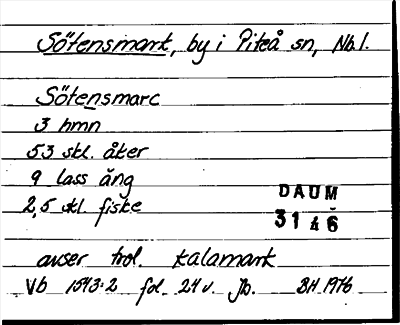 Sötensmark, by i Piteå sn, Nb l.
Sötensmarc
3 hmn
53 skl. åker
9 lass äng
2,5 skl. fiske
DAUM
3146
avser trol. Kalamark
Vb 1543:2 fol. 24 v. Jb. BH 1976